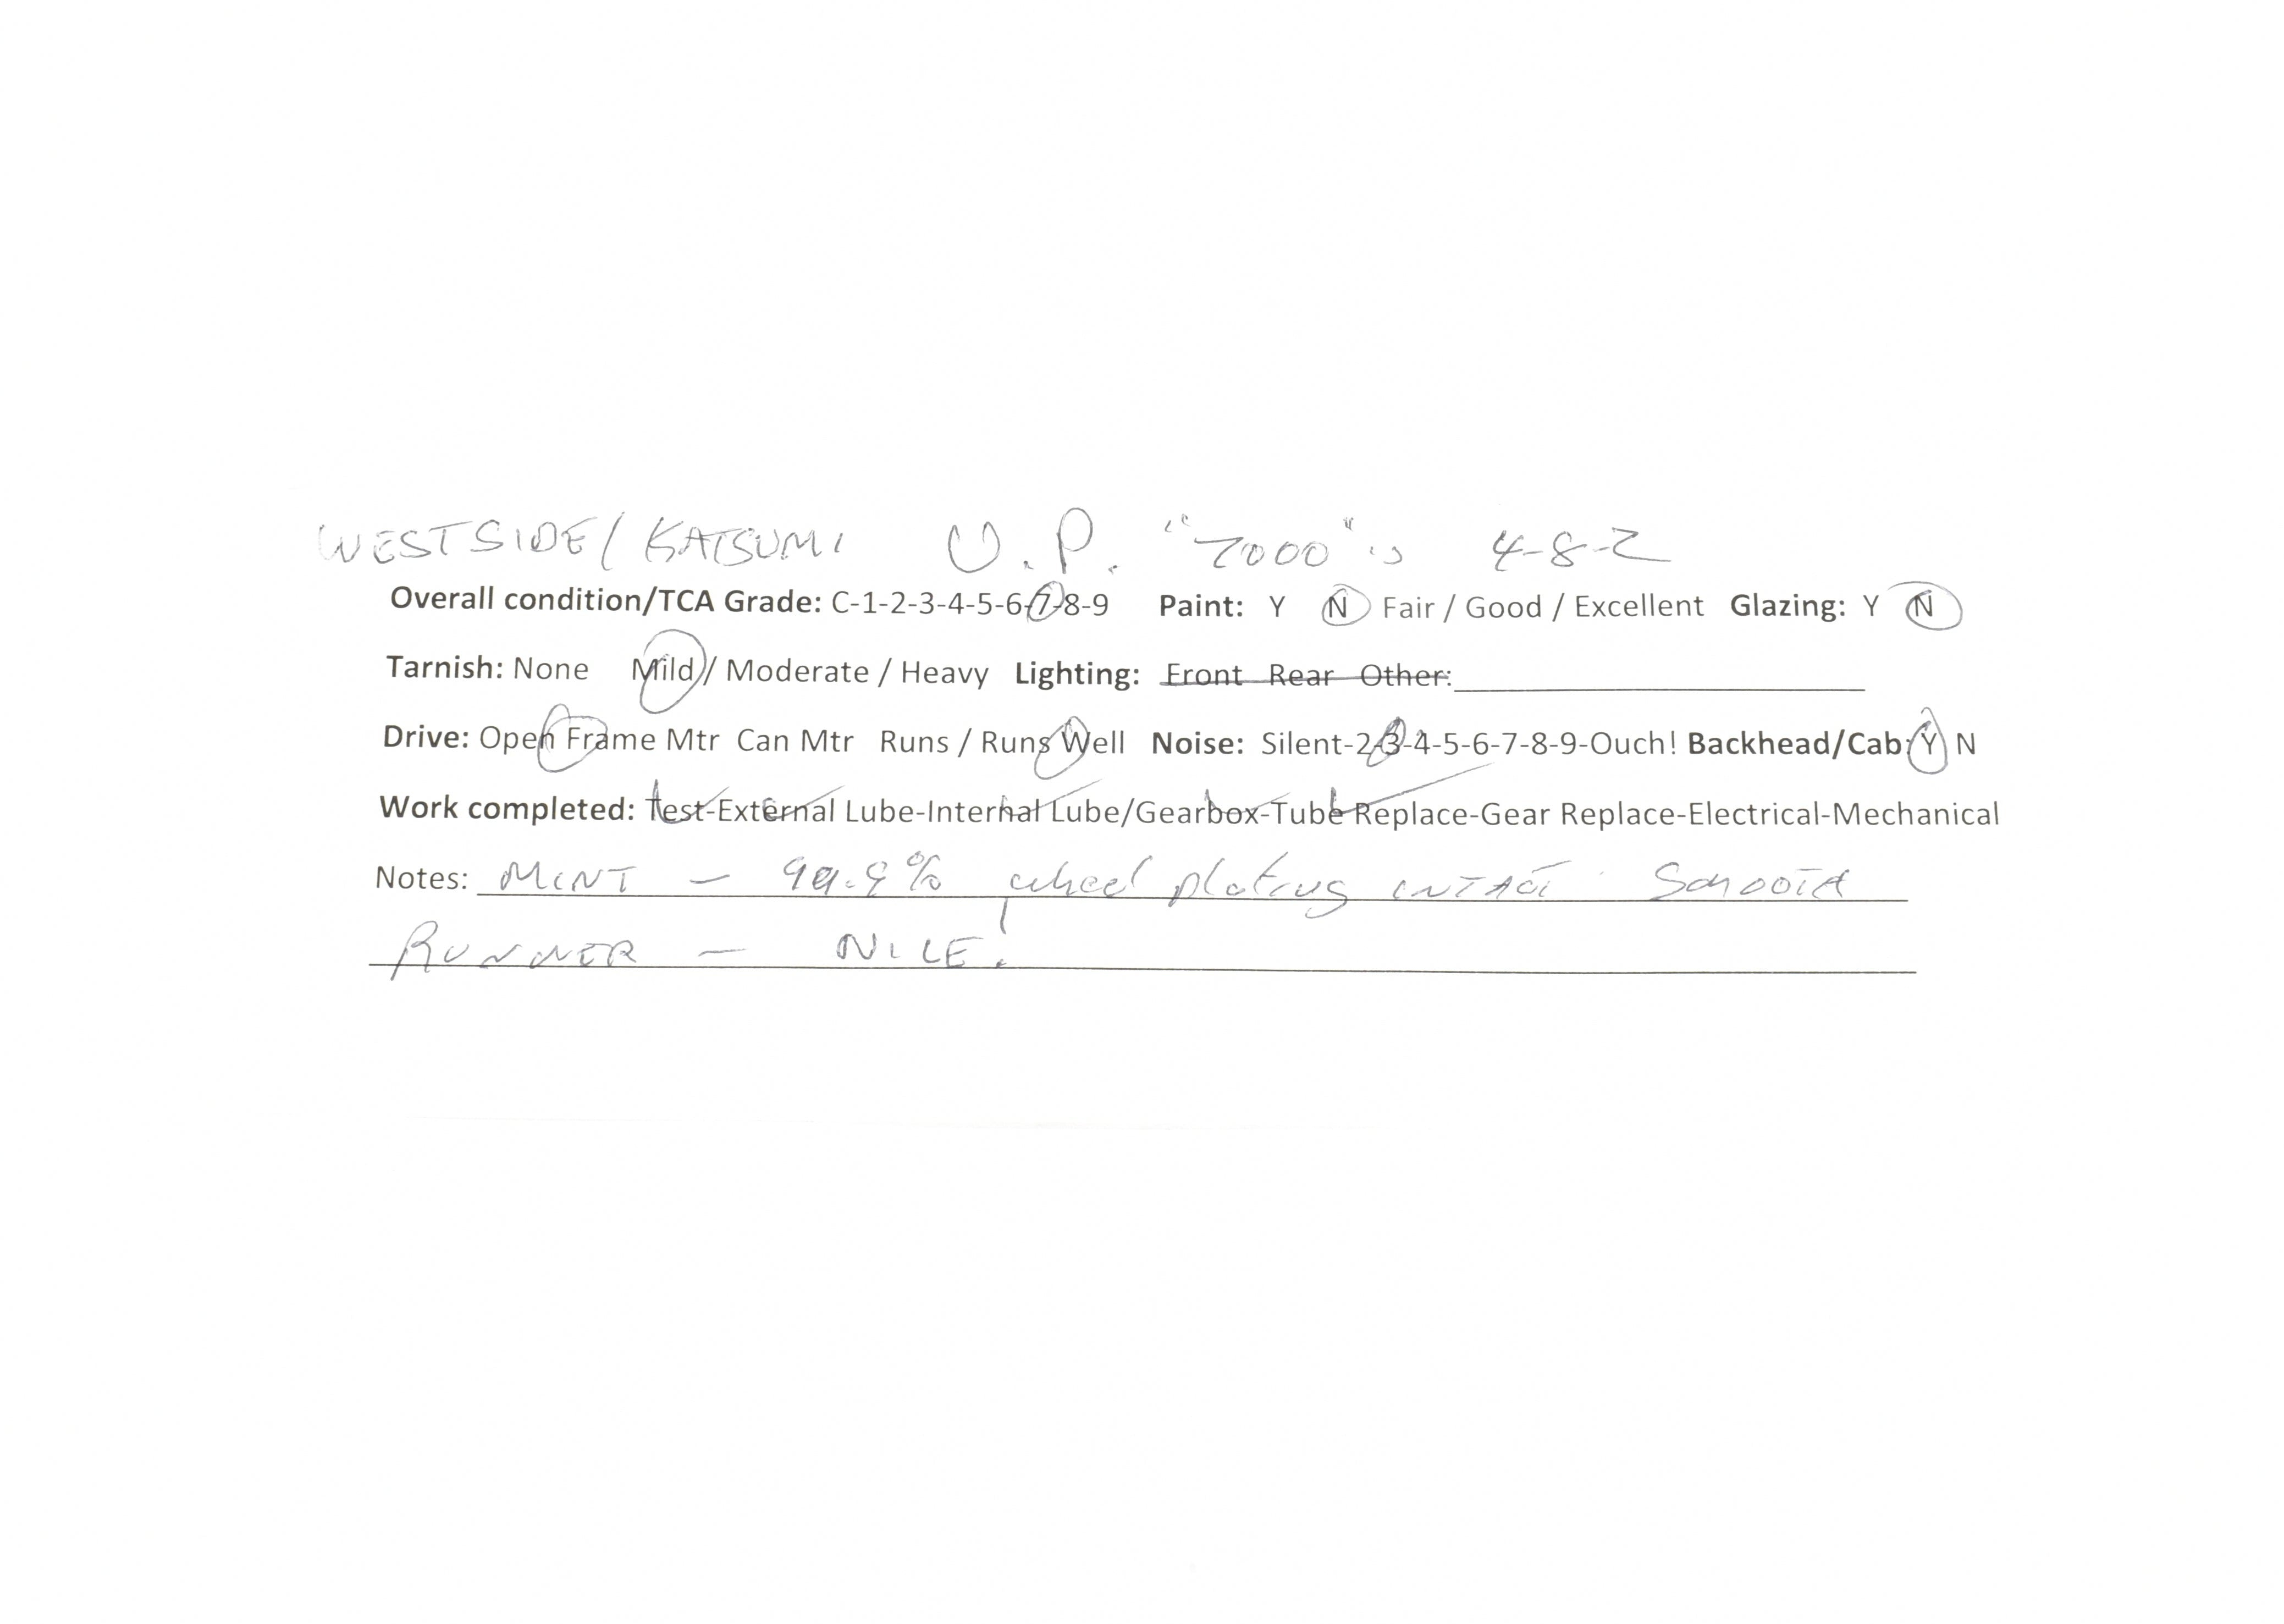 WESTSIDE/KATSUMI U.P. "7000"'s 4-8-2
Overall condition/TCA Grade: C-1-2-3-4-5-6-7-8-9 Paint: Y N Fair / Good / Excellent Glazing: Y N
Tarnish: None Mild / Moderate / Heavy Lighting: Front Rear Other:
Drive: Open Frame Mtr Can Mtr Runs / Runs Well Noise: Silent-2-3-4-5-6-7-8-9-Ouch! Backhead/Cab: Y N
Work completed: Test-External Lube-Internal Lube/Gearbox-Tube Replace-Gear Replace-Electrical-Mechanical
Notes: MINT - 99.9% wheel plating INTACT. SMOOTH
RUNNER - NICE!